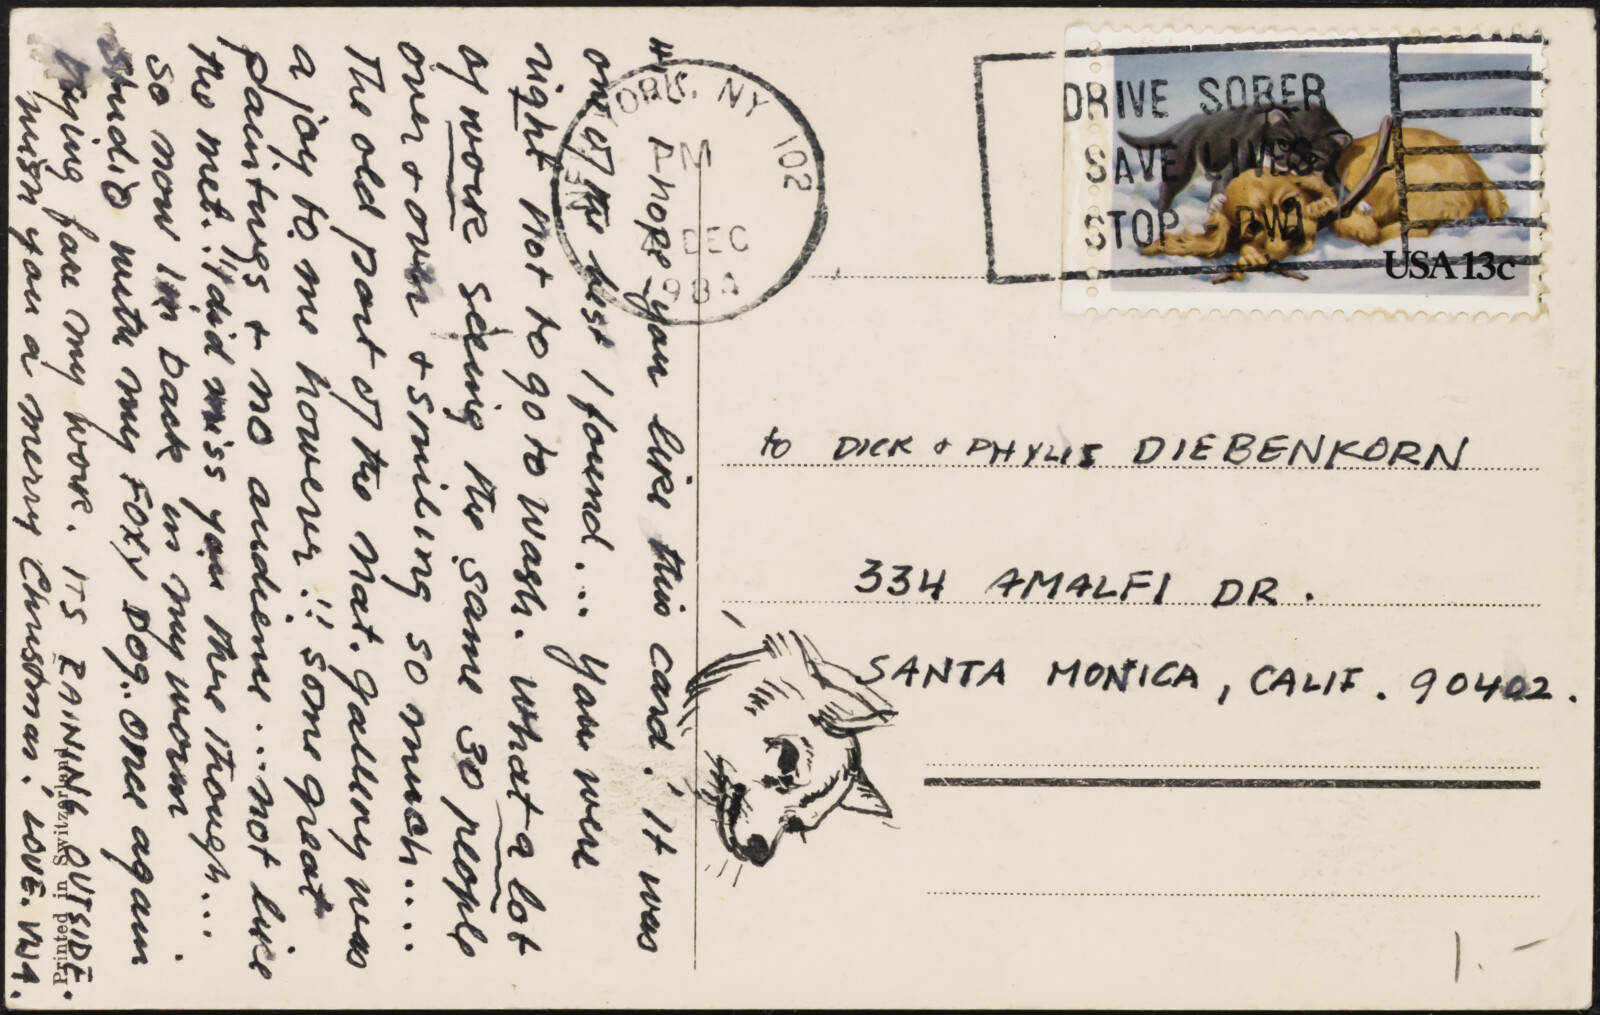 "I hope you like this card." It was
one of the best I found.... You were
right not to go to Wash. What a lot
of work seeing the same 30 people
over + over + smiling so much....
The old part of the Nat. Gallery was
a joy to me however!! Some great
paintings + no audience...not like
the met.!! I did miss you there though...
So now I'm back in my warm
studio with my Foxy Dog.. once again
trying face my work. ITS RAINING OUTSIDE.
wish you a merry Christmas. LOVE.
Printed in Switzerland
YORK, NY 102
PM
DEC
DRIVE SOBER
SAVE LIVES
STOP DWI
USA 13c
to DICK + PHYLIS DIEBENKORN
334 AMALFI DR.
SANTA MONICA, CALIF. 90402.